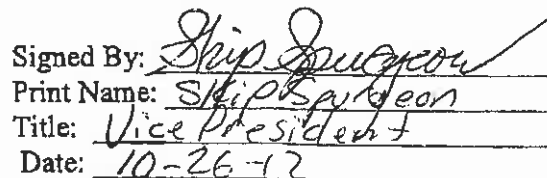 Signed By: Skip Spurgeon
Print Name: Skip Spurgeon
Title: Vice President
Date: 10-26-12